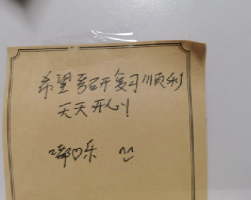 希望考研复习顺利
天天开心！
嘟口乐